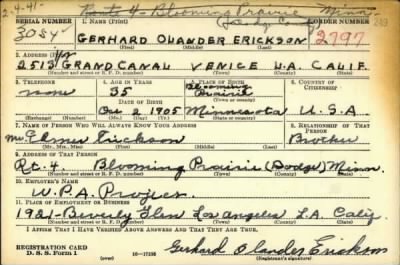 2-4-41- Route 4- Blooming Prairie, Minn.
SERIAL NUMBER 1. NAME (Print) ORDER NUMBER
3054 GERHARD OLANDER ERICKSON 2797
(First) (Middle) (Last)
2. ADDRESS (Print)
2513 GRAND CANAL VENICE L.A. CALIF.
(Number and street or R. F. D. number) (Town) (County) (State)
3. TELEPHONE 4. AGE IN YEARS 5. PLACE OF BIRTH 6. COUNTRY OF CITIZENSHIP
none 35 Blooming Prairie
DATE OF BIRTH (Town or county)
1905 Minnesota U.S.A.
(Exchange) (Number) (Mo.) (Day) (Yr.) (State or country)
7. NAME OF PERSON WHO WILL ALWAYS KNOW YOUR ADDRESS 8. RELATIONSHIP OF THAT PERSON
Mr Elmer Erickson Brother
(Mr., Mrs., Miss) (First) (Middle) (Last)
9. ADDRESS OF THAT PERSON
Rt. 4 Blooming Prairie (Dodge) Minn.
(Number and street or R. F. D. number) (Town) (County) (State)
10. EMPLOYER'S NAME
W.P.A. Project
11. PLACE OF EMPLOYMENT OR BUSINESS
1921-Beverly Glen Los Angeles L.A. Calif
(Number and street or R. F. D. number) (Town) (County) (State)
I AFFIRM THAT I HAVE VERIFIED ABOVE ANSWERS AND THAT THEY ARE TRUE.
REGISTRATION CARD
D. S. S. Form 1 (over) 16-17105 Gerhard Olander Erickson
(Registrant's signature)